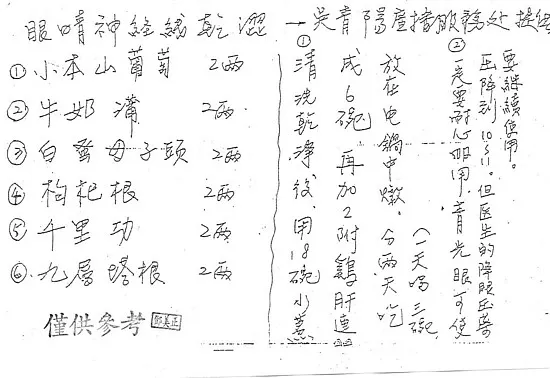 眼睛神經線乾澀
→吳青陽彥播服務处提供
①小本山葡萄 2兩
②牛奶 2兩
③白 母子頭 2兩
④枸杞根 2兩
⑤千里功 2兩
⑥九層塔根 2兩
僅供參考
①清洗乾淨後、用18碗水
成6碗 再加2附鷄肝連
放在电鍋中燉。分兩天吃
(一天喝三碗
②一定要耐心服用、青光眼可使
压降到10511。但医生的降眼压葯
要継續使用。